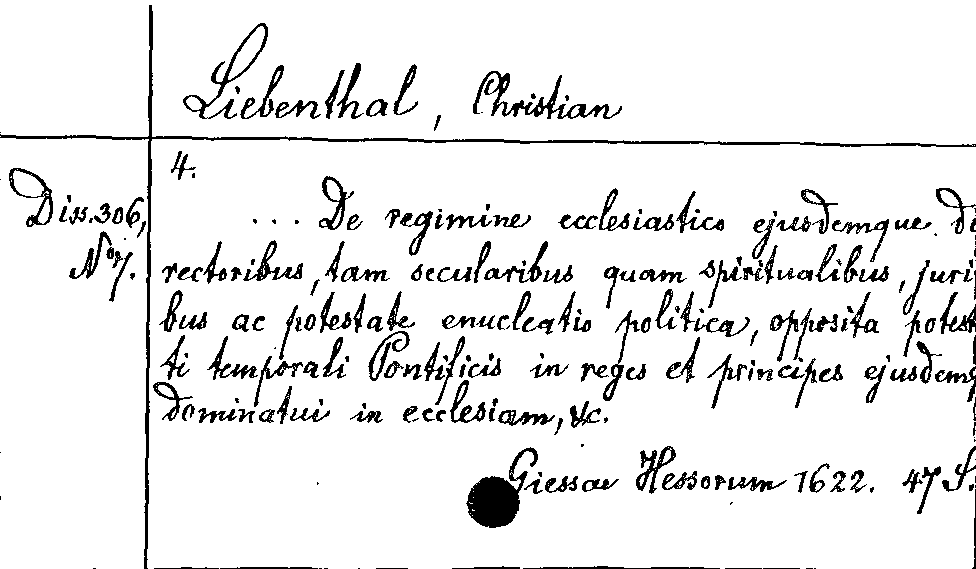 Liebenthal, Christian
4.
Diss. 306,
No 7.
... De regimine ecclesiastico ejusdemque di
rectoribus, tam secularibus quam spiritualibus, juri
bus ac potestate enucleatio politica, opposita potest
ti temporali Pontificis in reges et principes ejusdemq
dominatui in ecclesiam, &c.
Giessae Hessorum 1622. 47 S.